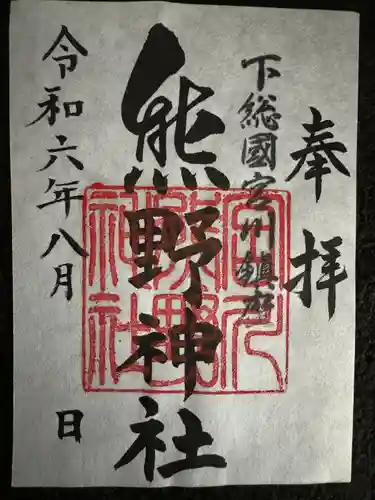 奉拝
下総國宮川鎮座
熊野神社
令和六年八月 日